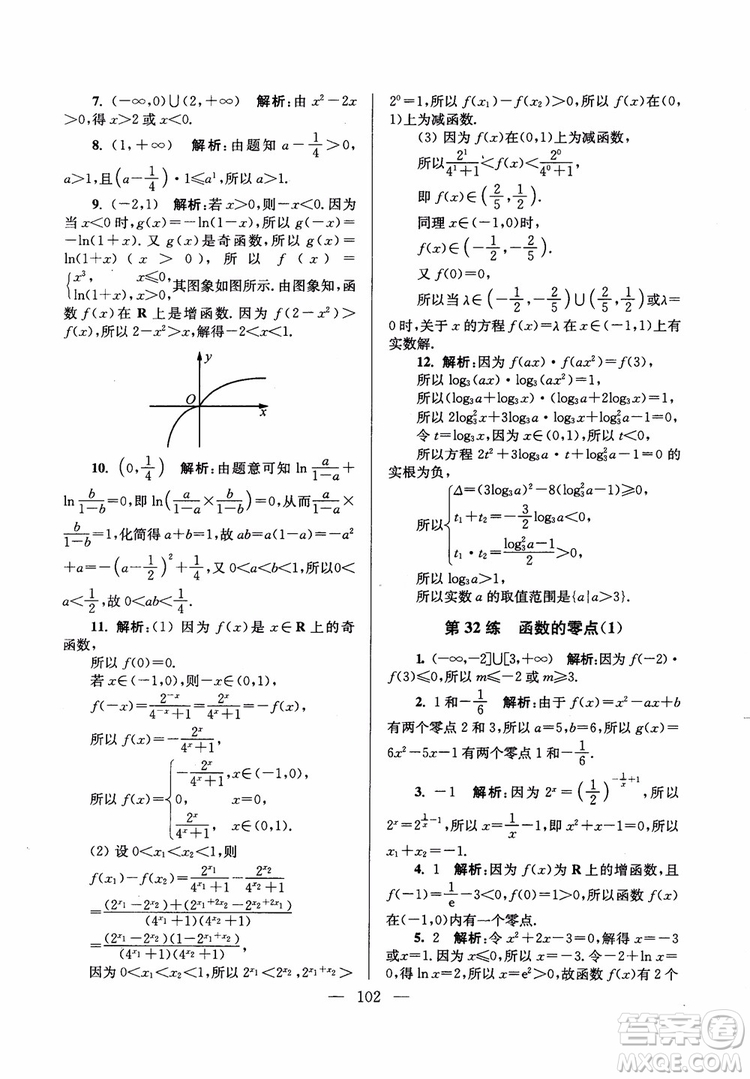 7. (－∞,0)∪(2,＋∞)　解析:由 x²－2x
＞0,得 x＞2 或 x＜0.
8. (1,＋∞)　解析:由题知 a－1/4＞0,
a＞1,且(a－1/4)·1≤a¹,所以 a＞1.
9. (－2,1)　解析:若 x＞0,则－x＜0.因为
当 x＜0 时,g(x)＝－ln(1－x),所以 g(－x)＝
－ln(1＋x).又 g(x)是奇函数,所以 g(x)＝
ln(1＋x)(x＞0),所以 f(x)＝
{x³, x≤0, ln(1＋x),x＞0;其图象如图所示.由图象知,函
数 f(x)在 R 上是增函数.因为 f(2－x²)＞
f(x),所以 2－x²＞x,解得－2＜x＜1.
y
O
x
10. (0,1/4)　解析:由题意可知 ln a/(1－a)＋
ln b/(1－b)＝0,即 ln(a/(1－a)×b/(1－b))＝0,从而a/(1－a)×
b/(1－b)＝1,化简得 a＋b＝1,故 ab＝a(1－a)＝－a²
＋a＝－(a－1/2)²＋1/4,又 0＜a＜b＜1,所以 0＜
a＜1/2,故 0＜ab＜1/4.
11. 解析:(1) 因为 f(x)是 x∈R 上的奇
函数,
所以 f(0)＝0.
若 x∈(－1,0),则－x∈(0,1),
f(－x)＝2⁻ˣ/(4⁻ˣ＋1)＝2ˣ/(4ˣ＋1)＝－f(x),
所以 f(x)＝－2ˣ/(4ˣ＋1).
所以 f(x)＝{－2ˣ/(4ˣ＋1),x∈(－1,0),
0, x＝0,
2ˣ/(4ˣ＋1), x∈(0,1).
(2) 设 0＜x₁＜x₂＜1,则
f(x₁)－f(x₂)＝2^x₁/(4^x₁＋1)－2^x₂/(4^x₂＋1)
＝((2^x₁－2^x₂)＋(2^(x₁＋2x₂)－2^(2x₁＋x₂)))/((4^x₁＋1)(4^x₂＋1))
＝(2^x₁－2^x₂)(1－2^(x₁＋x₂))/((4^x₁＋1)(4^x₂＋1))
因为 0＜x₁＜x₂＜1,所以 2^x₁＜2^x₂,2^(x₁＋x₂)＞
2⁰＝1,所以 f(x₁)－f(x₂)＞0,所以 f(x)在(0,
1)上为减函数.
(3) 因为 f(x)在(0,1)上为减函数,
所以2¹/(4¹＋1)＜f(x)＜2⁰/(4⁰＋1),
即 f(x)∈(2/5,1/2).
同理 x∈(－1,0)时,
f(x)∈(－1/2,－2/5).
又 f(0)＝0,
所以当 λ∈(－1/2,－2/5)∪(2/5,1/2)或 λ＝
0 时,关于 x 的方程 f(x)＝λ 在 x∈(－1,1)上有
实数解.
12. 解析:因为 f(ax)·f(ax²)＝f(3),
所以 log₃(ax)·log₃(ax²)＝1,
所以(log₃a＋log₃x)·(log₃a＋2log₃x)＝1,
所以 2log₃²x＋3log₃a·log₃x＋log₃²a－1＝0,
令 t＝log₃x,因为 0＜x＜1,所以 t＜0,
所以方程 2t²＋3log₃a·t＋log₃²a－1＝0 的
实根为负,
所以{Δ＝(3log₃a)²－8(log₃²a－1)≥0,
t₁＋t₂＝－3/2log₃a＜0,
t₁·t₂＝(log₃²a－1)/2＞0,
所以 log₃a＞1,
所以实数 a 的取值范围是{a|a＞3}.
第 32 练　函数的零点(1)
1. (－∞,－2]∪[3,＋∞)　解析:f(－2)·
f(3)≤0,所以 m≤－2 或 m≥3.
2. 1 和－1/6　解析:由于 f(x)＝x²－ax＋b
有两个零点 2 和 3,所以 a＝5,b＝6,所以 g(x)＝
6x²－5x－1 有两个零点 1 和－1/6.
3. －1　解析:因为 2ˣ＝(1/2)^(－1/x＋1),所以
2ˣ＝2^(1/x－1),所以 x＝1/x－1,所以 x²＋x－1＝0,所以
x₁＋x₂＝－1.
4. 1　解析:因为 f(x)为 R 上的增函数,又
f(－1)＝1/e－4＜0,f(0)＝1＋0－3＜0,f(1)＞0,
所以函数有一个零点.
5. 2　解析:令 x²＋2x－3＝0,解得 x＝－3
或 x＝1.因为 x≤0,所以 x＝－3.令－2＋ln x＝
0,得 ln x＝2,所以 x＝e²＞0,故函数 f(x)有 2 个
— 102 —
答案圈
MXQE.COM